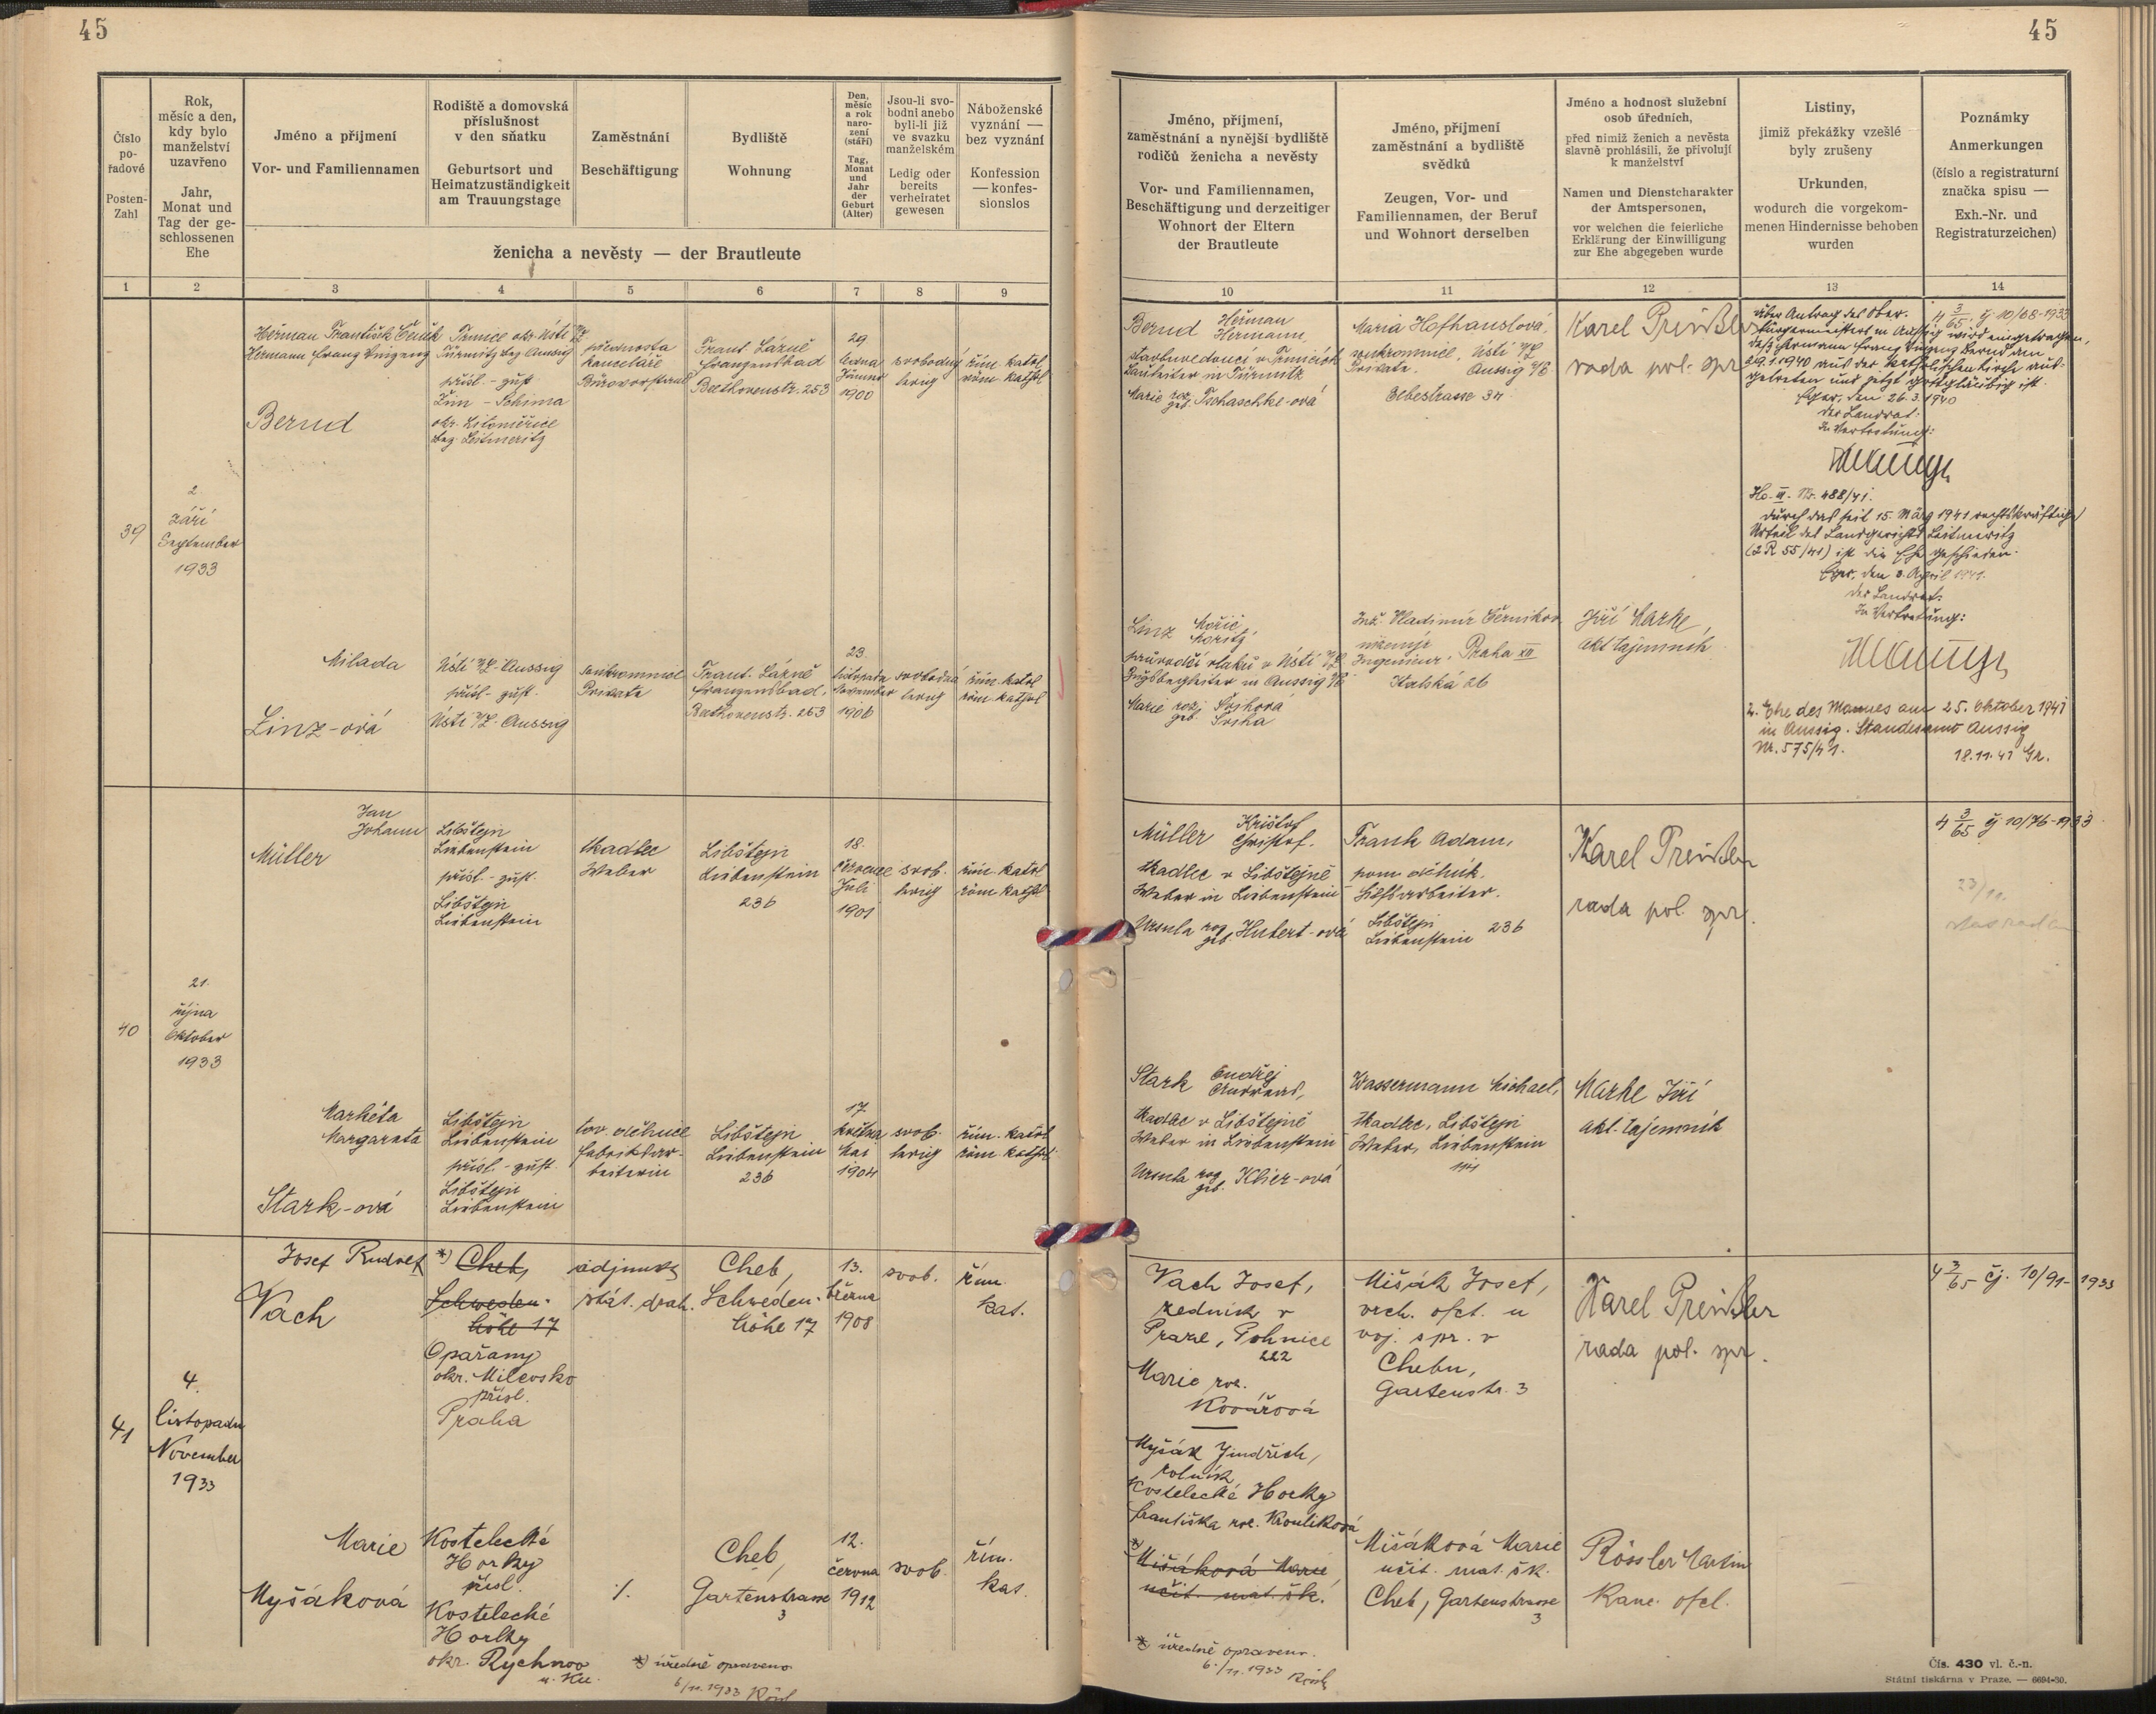 45
45
Číslo
po-
řadové
Posten-
Zahl
Rok,
měsíc a den,
kdy bylo
manželství
uzavřeno
Jahr,
Monat und
Tag der ge-
schlossenen
Ehe
Jméno a přijmení
Vor- und Familiennamen
Rodiště a domovská
příslušnost
v den sňatku
Geburtsort und
Heimatzuständigkeit
am Trauungstage
Zaměstnání
Beschäftigung
Bydliště
Wohnung
Den,
měsíc
a rok
naro-
zení
(stáří)
Tag,
Monat
und
Jahr
der
Geburt
(Alter)
Jsou-li svo-
bodni anebo
byli-li již
ve svazku
manželském
Ledig oder
bereits
verheiratet
gewesen
Náboženské
vyznání —
bez vyznání
Konfession
— konfes-
sionslos
ženicha a nevěsty — der Brautleute
Jméno, přijmení,
zaměstnání a nynější bydliště
rodičů ženicha a nevěsty
Vor- und Familiennamen,
Beschäftigung und derzeitiger
Wohnort der Eltern
der Brautleute
Jméno, přijmení
zaměstnání a bydliště
svědků
Zeugen, Vor- und
Familiennamen, der Beruf
und Wohnort derselben
Jméno a hodnost služební
osob úředních,
před nimiž ženich a nevěsta
slavně prohlásili, že přivolují
k manželství
Namen und Dienstcharakter
der Amtspersonen,
vor welchen die feierliche
Erklärung der Einwilligung
zur Ehe abgegeben wurde
Listiny,
jimiž překážky vzešlé
byly zrušeny
Urkunden,
wodurch die vorgekom-
menen Hindernisse behoben
wurden
Poznámky
Anmerkungen
(číslo a registraturní
značka spisu —
Exh.-Nr. und
Registraturzeichen)
1 2 3 4 5 6 7 8 9 10 11 12 13 14
39
2.
září
September
1933
Heřman František Čeněk
Hermann Franz Vinzenz
Bernd
Trmice okr. Ústí n/L
Türmitz bez. Aussig
přísl. - zust.
Žim - Schima
okr. Litoměřice
bez. Leitmeritz
přednosta
kanceláře
Bürovorstand
Frant. Lázně
Franzensbad
Beethovenstr. 263
29.
ledna
Jänner
1900
svobodný
ledig
řím. katol.
röm. kathol.
Bernd Heřman
Hermann,
stavbyvedoucí v Trmicích
Bauleiter in Türmitz
Marie roz.
geb. Tschaschke-ová
Maria Hofhanslová,
soukromnice, Ústí n/L
Private, Aussig a/E
Elbestrasse 34
Karel Preißler
rada pol. spr.
Über Antrag des Ober-
bürgermeisters in Aussig wird eingetragen,
daß Hermann Franz Vinzenz Bernd am
29.1.1940 aus der katholischen Kirche aus-
getreten und jetzt gottgläubig ist.
Eger, den 26.3.1940
Der Landrat:
In Vertretung:
4 3/65 čj 10/68-1933
Ho. III. Nr. 488/41.
Durch das seit 15. März 1941 rechtskräftige
Urteil des Landgerichts Leitmeritz
(2 R 55/41) ist die Ehe geschieden.
Eger, den 3. April 1941.
Der Landrat:
In Vertretung:
Milada
Linz-ová
Ústí n/L - Aussig
přísl. - zust.
Ústí n/L - Aussig
soukromnice
Private
Frant. Lázně
Franzensbad,
Beethovenstr. 263
23.
listopadu
November
1906
svobodná
ledig
řím. katol.
röm. kathol.
Linz Mořic,
Moritz,
průvodčí vlaků v Ústí n/L
Zugsbegleiter in Aussig a/E
Marie roz.
geb.
Inž. Vladimír
Ingenieur, Praha XII
Italská 26
Jiří Marke,
akt. tajemník
2. Ehe des Mannes am 25. Oktober 1941
in Aussig. Standesamt Aussig
Nr. 575/41.
18.11.41 Gr.
40
21.
října
Oktober
1933
Jan
Johann
Müller
Libštejn
Liebenstein
přísl. - zust.
Libštejn
Liebenstein
tkadlec
Weber
Libštejn
Liebenstein
236
18.
července
Juli
1901
svob.
ledig
řím. katol.
röm. kathol.
Müller Krištof
Christof.
tkadlec v Libštejně
Weber in Liebenstein
Ursula roz.
geb. Hubert-ová
Frank Adam,
pom. dělník,
Hilfsarbeiter.
Libštejn
Liebenstein 236
Karel Preißler
rada pol. spr.
4 3/65 čj 10/76-1933
Markéta
Margareta
Stark-ová
Libštejn
Liebenstein
přísl. - zust.
Libštejn
Liebenstein
tov. dělnice
Fabriksar-
beiterin
Libštejn
Liebenstein
236
17.
května
Mai
1904
svob.
ledig
řím. katol.
röm. kathol.
Stark Ondřej
Andreas,
tkadlec v Libštejně
Weber in Liebenstein
Ursula roz.
geb. Klier-ová
Wassermann Michael,
tkadlec, Libštejn
Weber, Liebenstein
Marke Jiří
akt. tajemník
41
4.
listopadu
November
1933
Josef Rudolf
Vach
*) Cheb,
Schweden-
höhe 17
Opařany
okr. Milevsko
přísl.
Praha
adjunkt
stát. drah.
Cheb,
Schweden-
höhe 17
13.
března
1908
svob.
řím.
kat.
Vach Josef,
ředník v
Praze,
222
Marie roz.
Kovářová
Mišák Josef,
vrch. ofcl. u
voj. spr. v
Chebu,
Gartenstr. 3
Karel Preißler
rada pol. spr.
4 3/65 čj. 10/91-1933
Marie
Myšáková
Kostelecké
Horky
přísl.
Kostelecké
Horky
okr. Rychnov
n. Kn.
·/.
Cheb,
Gartenstrasse
3
12.
června
1912
svob.
řím.
kat.
Myšák Jindřich,
rolník
Kostelecké Horky
Františka roz. Kroulíková
*) Mišáková Marie,
učit. mat. šk.
Mišáková Marie
učit. mat. šk.
Cheb, Gartenstrasse
3
Rössler Martin
Kanc. ofcl.
*) úředně opraveno
6/11. 1933
*) úředně opraveno.
6./11. 1933
Čís. 430 vl. č.-n.
Státní tiskárna v Praze. — 6694-30.